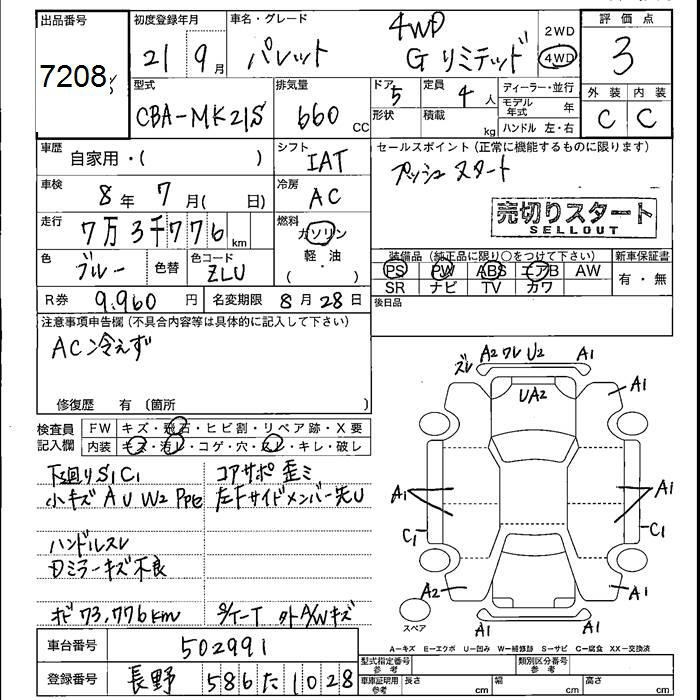 出品番号
7208
初度登録年月 車名・グレード
21 9月 パレット 4WD Gリミテッド
2WD
4WD
評価点
3
外装 内装
C C
型式
CBA-MK21S
排気量
660 CC
ドア 5
定員 4人
形状 積載 kg
ディーラー・並行
モデル年式 年
ハンドル 左・右
車歴
自家用・( )
シフト
IAT
セールスポイント (正常に機能するものに限ります)
プッシュスタート
車検
8年7月( 日)
冷房
AC
売切りスタート
SELLOUT
走行
7万3千776km
燃料
ガソリン
軽油
( ・ )
色
ブルー
色替
色コード
ZLU
装備品 (純正品に限り〇をつけて下さい) 新車保証書
PS PW ABS エアB AW
SR ナビ TV カワ
有・無
R券 9,960円 名変期限 8月28日
後日品
注意事項申告欄(不具合内容等は具体的に記入して下さい)
AC冷えず
修復歴 有 (箇所 )
検査員記入欄
FW キズ・飛石・ヒビ割・リペア跡・X要
内装 キズ・汚レ・コゲ・穴・スレ・キレ・破レ
下廻りS1C1
小キズAUW2
コアサポ歪ミ
左Fサイドメンバー先U
ハンドルスレ
ミラーキズ不良
73,776km
A/Wキズ
ズレ A2 ワレ U2 A1
UA2
A1
A1
A1
C1
C1
A2
A1
A1
A1
スペア
A-キズ E-エクボ U-凹み W-補修跡 S-サビ C-腐食 XX-交換済
車台番号 502991
登録番号 長野 586 た 1028
型式指定番号 参考
類別区分番号 参考
車庫証明用 参考
長さ cm 幅 cm 高さ cm